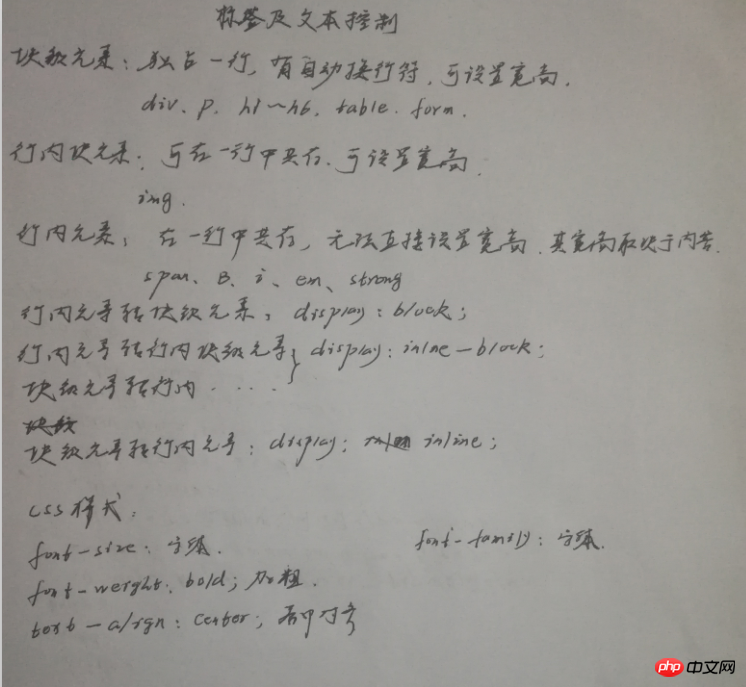 标签及文本控制
块级元素：独占一行，有自动换行符，可设置宽高。
div、p、h1~h6、table、form。
行内块元素：可在一行中共存、可设置宽高。
img.
行内元素：在一行中共存，无法直接设置宽高，其宽高取决于内容。
span、B、i、em、strong
行内元素转块级元素：display: block;
行内元素转行内块级元素} display: inlne-block;
块级元素转行内....
块级
块级元素转行内元素：display: inline;
CSS样式：
font-size：字体. font-family：字体.
font-weight: bold; 加粗.
text-align: center; 居中对齐
php 中文网